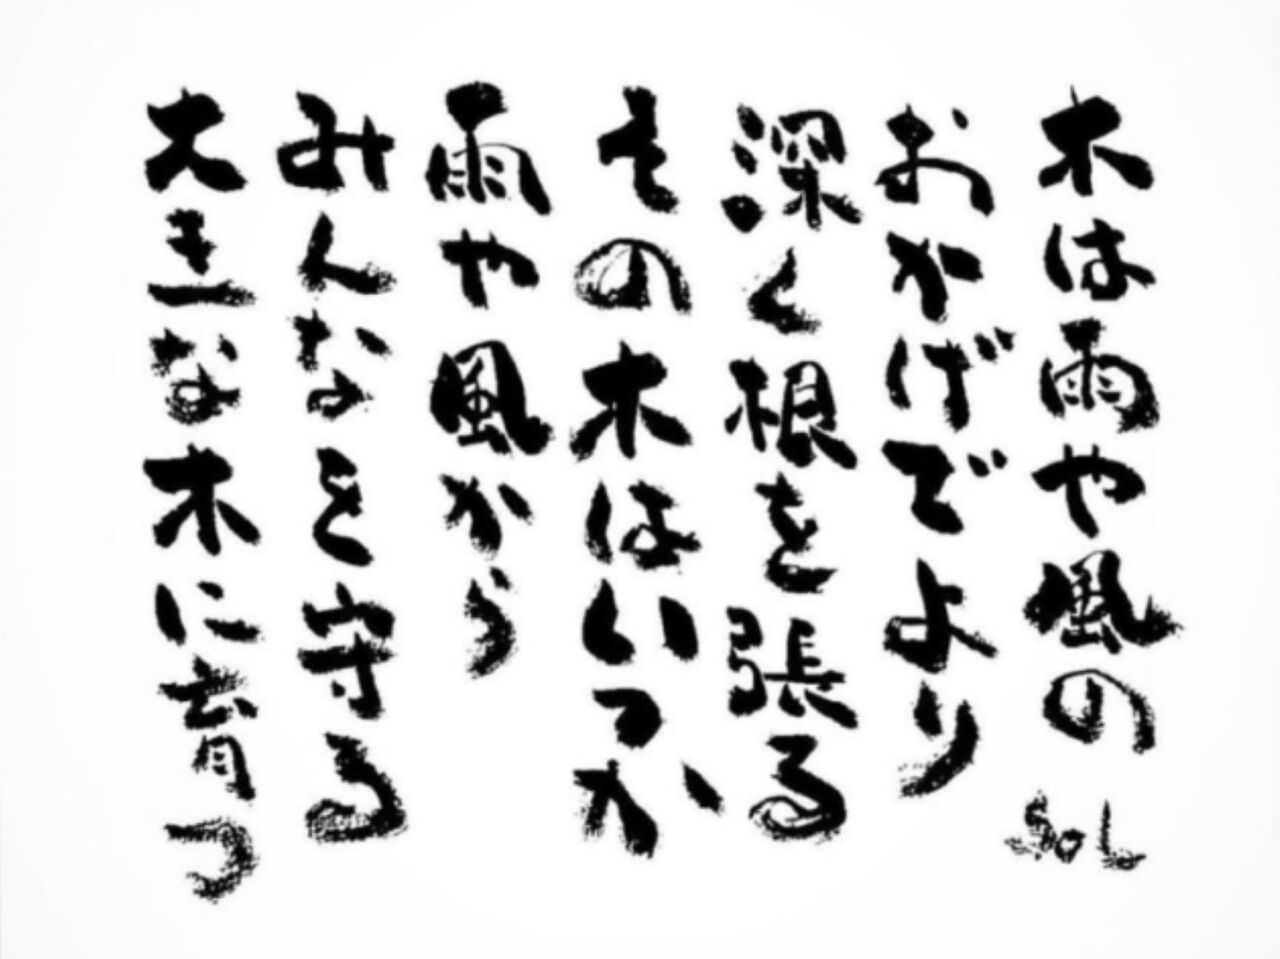 木は雨や風の
おかげでより
深く根を張る
その木はいつか
雨や風から
みんなを守る
大きな木に育つ
SOL